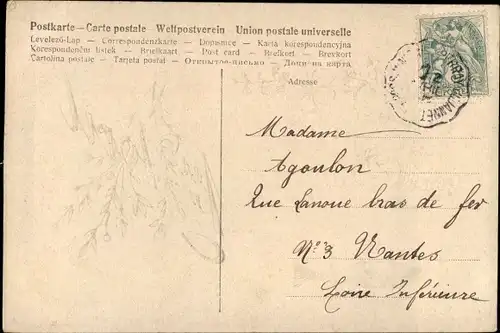 Postkarte — Carte postale — Weltpostverein — Union postale universelle
Levelező-Lap — Correspondenzkarte — Dopisnice — Karta korespondencyjna
Korespondenční lístek — Briefkaart — Post card — Brefkort — Brevkort
Cartolina postale — Tarjeta postal — Открытое письмо — Дописна карта
Adresse
Madame
Agoulon
Rue Lanoue bras de fer
N° 3 Nantes
Loire Inférieure